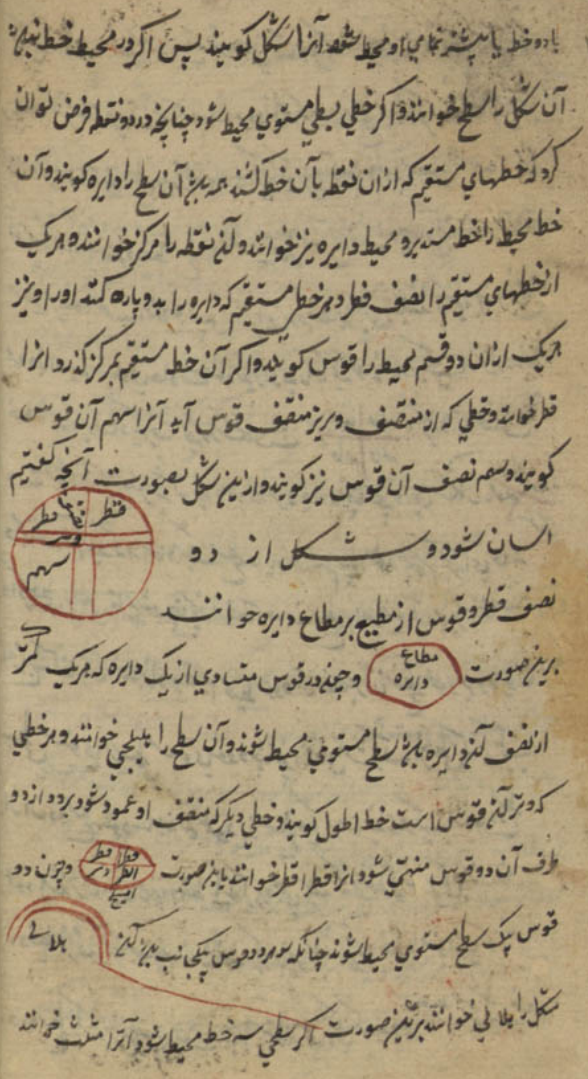 یا دو خط یا بیشتر تمامی او محیط شود آنرا شکل کویند پس اکر در محیط خط
آن شکل را سطح خوانند و اکر خطی بسطی مستوی محیط شود چنانچه در دو نقطه فرض توان
کرد که خطهای مستقیم که از ان نقطه بآن خط کشند همه برابر آن سطح را دایره کویند و آن
خط محیط را خط مستدیر و محیط دایره نیز خوانند و آن نقطه را مرکز خوانند و هر یک
از خطهای مستقیم را نصف قطر و هر خطی مستقیم که دایره را بدو پاره کند او را وتر
هر یک از ان دو قسم محیط را قوس کویند و اکر آن خط مستقیم بمرکز کذرد انرا
قطر خوانند و خطی که از منتصف وتر بر منتصف قوس آید آنرا سهم آن قوس
کویند و سهم نصف آن قوس نیز کویند و ازین شکل بصورت آنچه کفتیم
اسان شود و شکل از دو
قطر
قطر
وتر
سهم
نصف قطر و قوس از محیط بر مطاع دایره خوانند
برین صورت
مطاع
دایره
و چون در قوس متساوی از یک دایره که هر یک کمتر
از نصف آن دایره باشد سطح مستوی محیط شوند و آن سطح را خوانند و هر خطی
که وتر آن قوس است خط اطول کویند و خطی دیکر که منتصف او عمود شود بر دو از دو
طرف آن دو قوس منتهی شود انرا قطر اقطر خوانند باین صورت
قطر
و چون دو
قوس بیک سطح مستوی محیط شوند چنانکه هر دو قوس بیک جانب باشد آن
هلالی
شکل را هلالی خوانند برین صورت اکر سطحی سه خط محیط شود آنرا مثلث خوانند